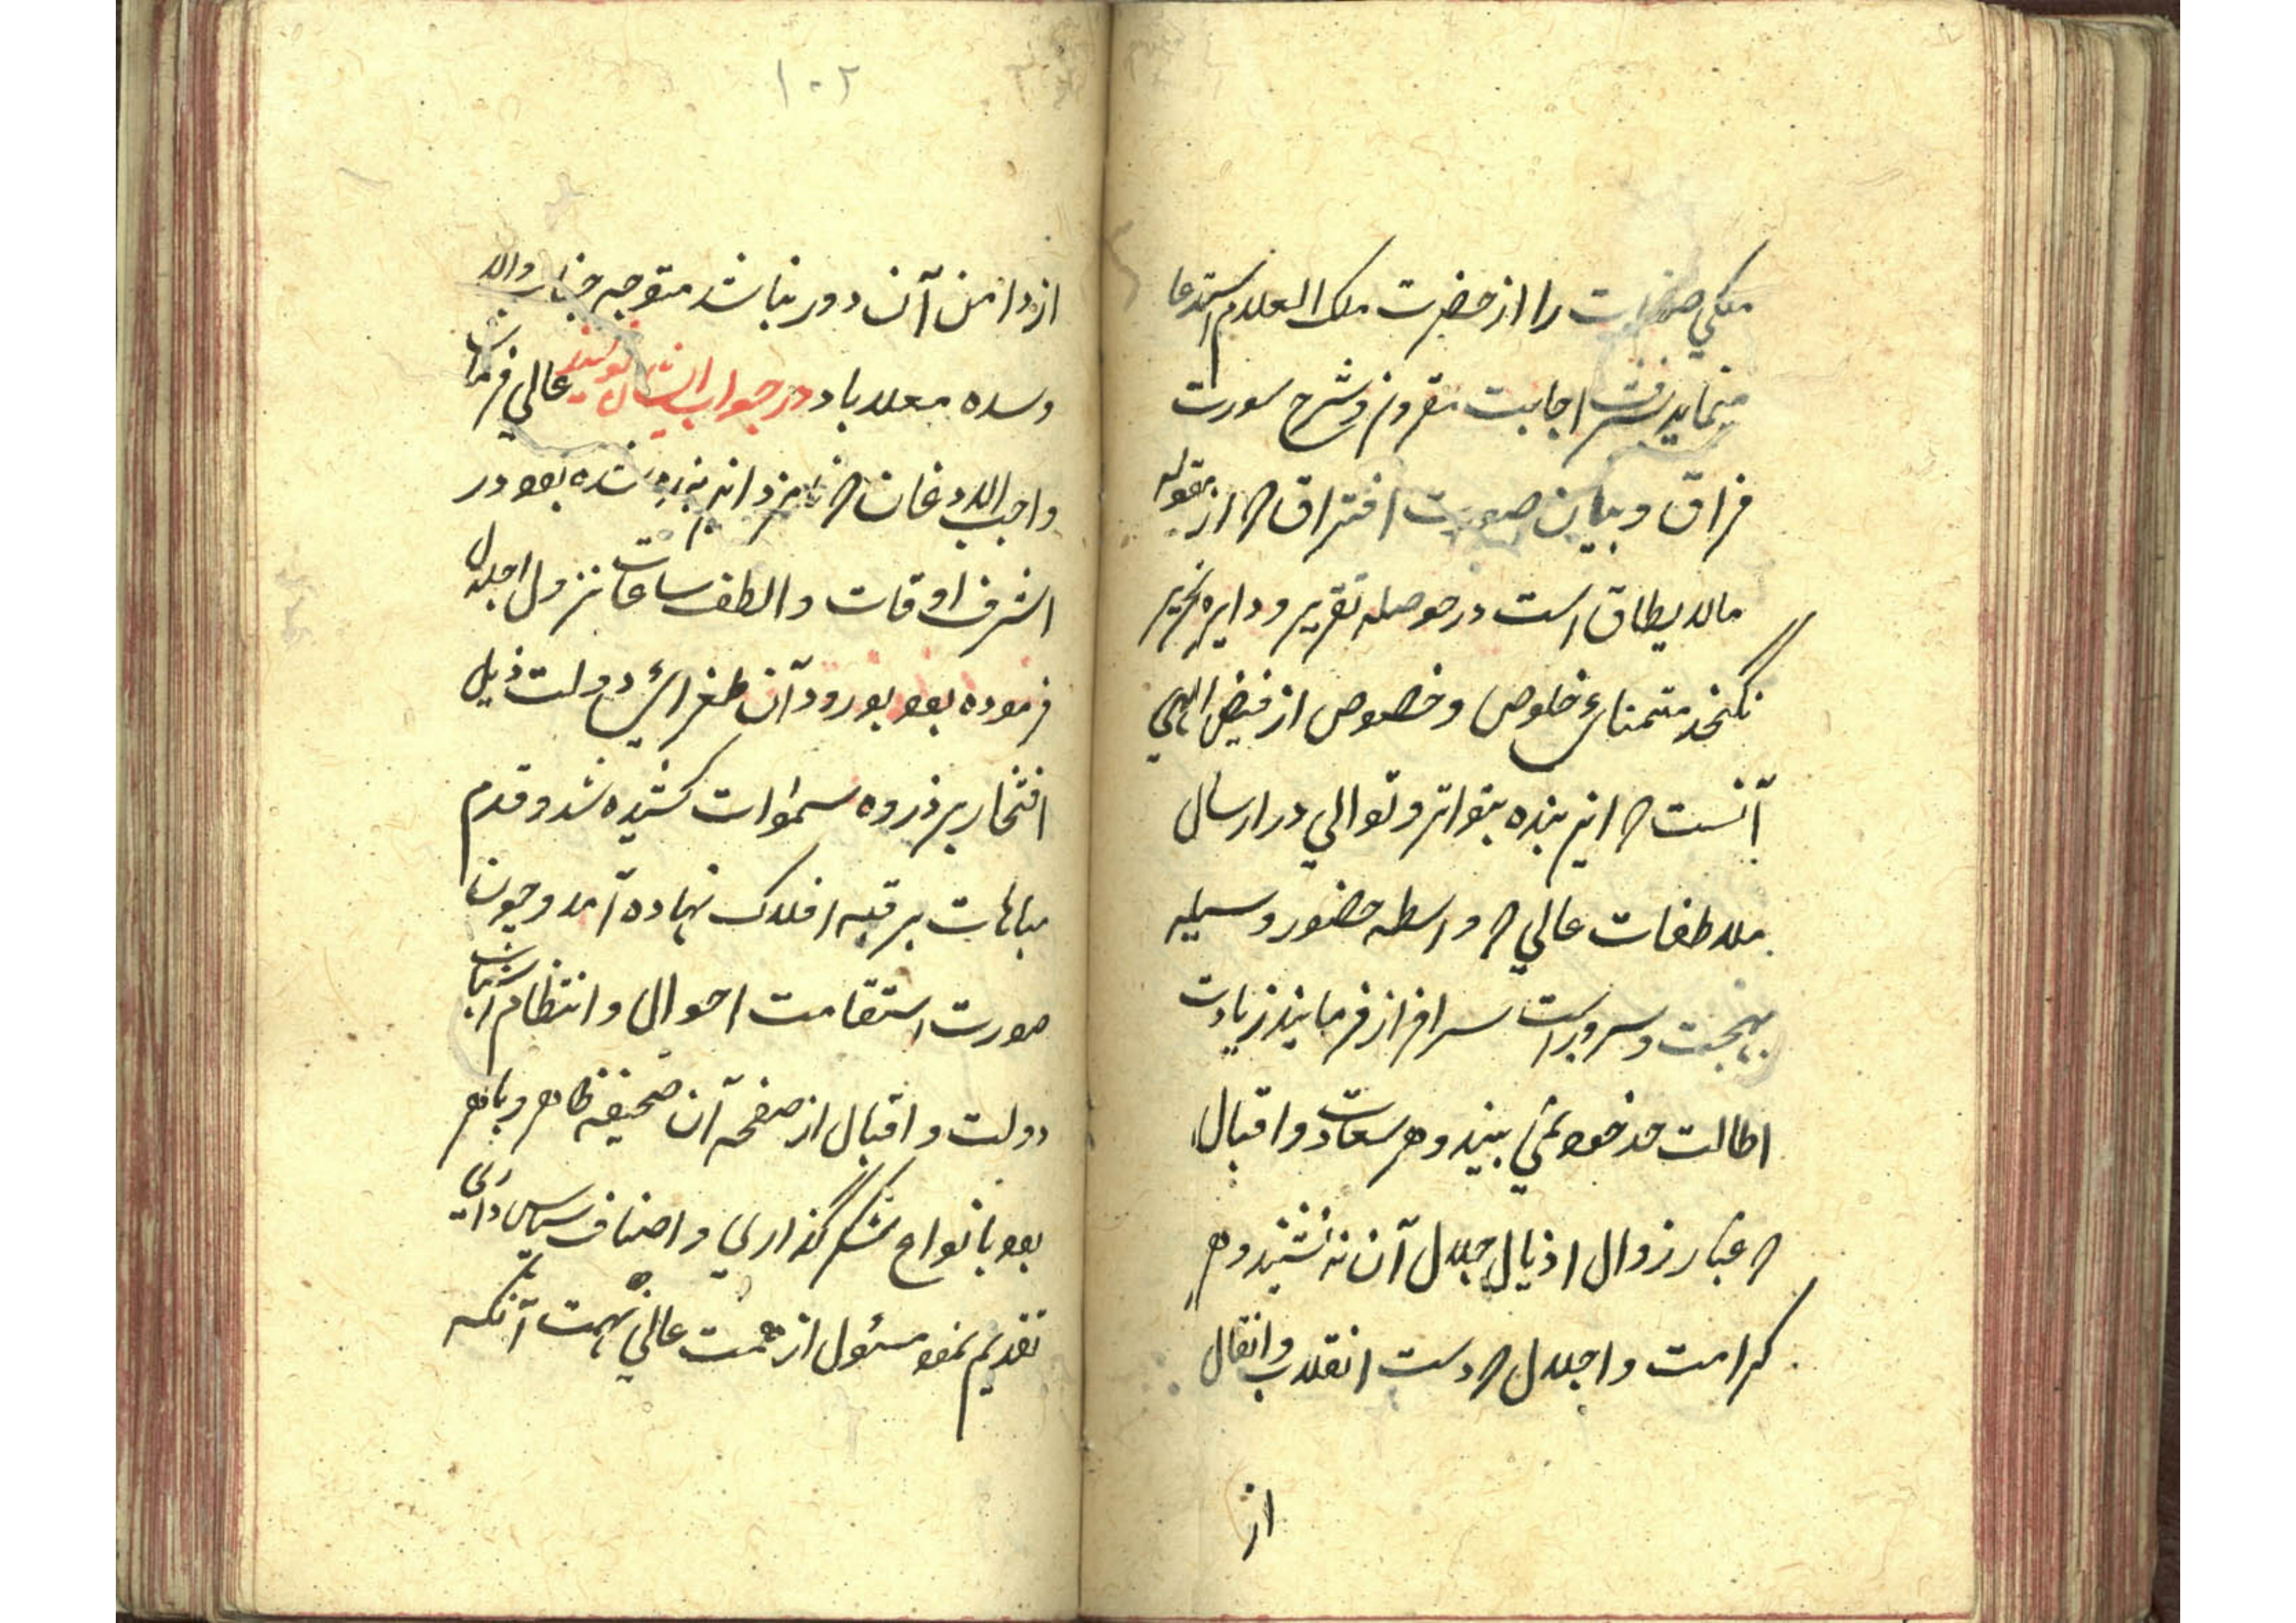 ملکی صفات را از حضرت ملک العلام استدعا
مینماید بشرف اجابت مقرون و شرح سورت
فراق و بیان صورت افتراق که از مقوله
مالا یطاق است در حوصله تقریر و دایره تحریر
نکنجد متمنای خلوص و خصوص از فیض الهی
آنست که این بنده بتواتر و توالی در ارسال
ملاطفات عالی که واسطه حضور و وسیله
بهجت و سرور است سرافراز فرمایند زیادت
اطالت حد خود نمی بیند و هر سعادت و اقبال
که غبار زوال اذیال جلال آن ننشیند و هر
کرامت و اجلال که دست انقلاب و انتقال
از
۱۰۲
از دامن آن دور نباشد متوجه جناب والا
و سده معلا باد در جواب ایشان نویسند عالی فرمان
واجب الاذعان که نامزد این بنده شده بود در
اشرف اوقات و الطف ساعات نزول اجلال
فرموده بود بورود آن طغرای دولت ذیل
افتخار بر ذروه سموات کشیده شد و قدم
مباهات بر قبه افلاک نهاده آمد و چون
صورت استقامت احوال و انتظام اسباب
دولت و اقبال از صفحه آن صحیفه ظاهر و باهر
بود بانواع شکر گذاری و اصناف سپاس داری
تقدیم نمود مسئول از همت عالی نهمت آنکه